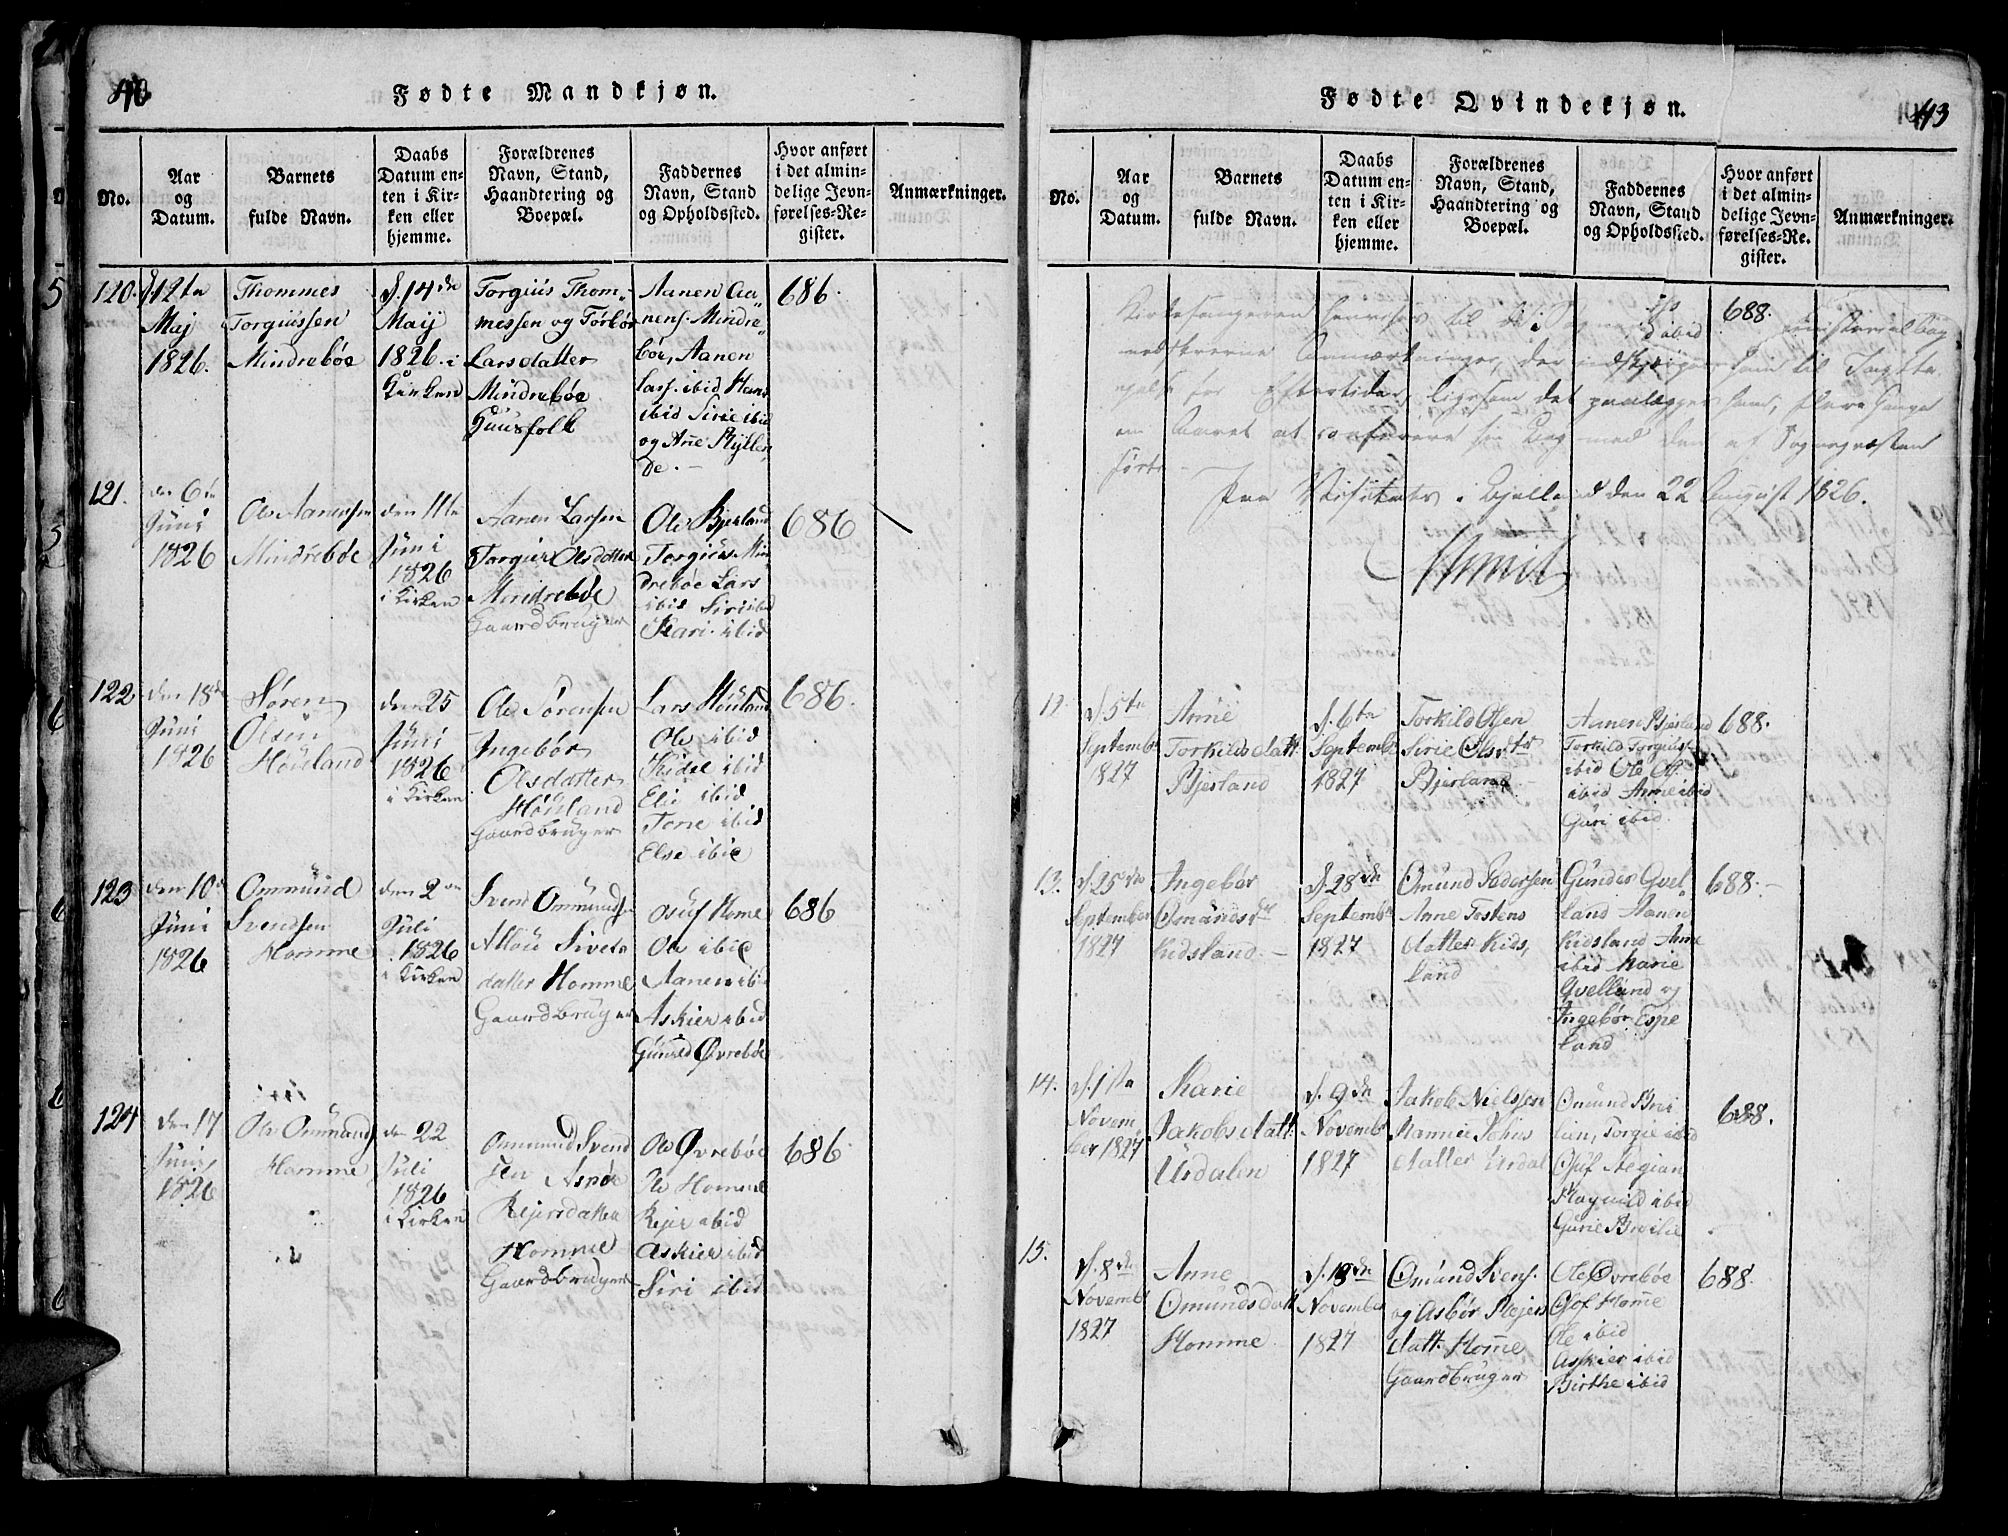 Fødte Mandkjøn.
No.
Aar og Datum.
Barnets fulde Navn.
Daabs Datum enten i Kirken eller hjemme.
Forældrenes Navn, Stand, Haandtering og Boepæl.
Faddernes Navn, Stand og Opholdssted.
Hvor anført i det almindelige Jevnførelses-Register.
Anmærkninger.
120.
d. 12te
Maj
1826.
Thommes
Torgiussen
Mindrebøe
d. 14de
Maij
1826. i
Kirken
Torgius Thom-
messen og Tørbør
Larsdatter
Mindrebøe
Huusfolk
Aanen Aa-
nens. Mindre-
bøe, Aanen
Lars. ibid Hans
ibid Sirie ibid
og Ane Kyllen
de.
686.
121.
den 6te
Juni
1826
Ole Aanensen
Mindrebøe
den 11te
Juni
1826
i Kirken
Aanen Larsen
Torgier Olsdatter
Mindrebøe
Gaardbruger
Ole Bjerland
Torgius Min
drebøe Lars
ibid Siri ibid
Kari ibid
686
122.
den 18de
Juni
1826
Søren
Olsen
Høiland
den 25
Juni
1826
i Kirken
Ole Sørensen
Ingebør
Olsdatter
Høiland
Gaardbruger
Lars Høiland
Ole ibid
Kidel ibid
Eli ibid
Tone ibid
Else ibid
686.
123
den 10de
Juni
1826
Ommund
Svendsen
Homme
den 2den
Juli
1826
i Kirken
Svend Ommunds
Allou Sivers
datter Homme
Gaardbruger
Osuf Home
Ole ibid
Aanen ibi
Askier ibid
Guneld Øvrebøe
686
124
den 17
Juni
1826
Ole Ommunds
Homme
den 22
Juli
1826
i Kirken
Ommund Svend
sen Asbør
Reiersdatter
Homme
Gaardbruger
Ole Øvrebøe
Ole Homme
Rejer ibid
Askier ibid
Siri ibid
686.
Fødte Qvindekjøn.
113
No.
Aar og Datum.
Barnets fulde Navn.
Daabs Datum enten i Kirken eller hjemme.
Forældrenes Navn, Stand, Haandtering og Boepæl.
Faddernes Navn, Stand og Opholdssted.
Hvor anført i det almindelige Jevnførelses-Register.
Anmærkninger.
688.
Kirkesangeren henvises til de i Sogne
ministerialbog
nedskrevne Anmærkninger, der
ham til Iagtta-
gelse for Eftertiden, ligesom det paalægges ham, flere Gange
om Aaret at conferere sin Bog med den af Sognepræsten
førte
Paa Visitats i Bjelland den 22 August 1826.
12.
d. 5te
Septemb
1827
Anne
Torkildsdatt.
Bjerland
d. 6te
Septemb
1827
Torkild Olsen
Sirie Olsdtr
Bjerland
Aanen Bjerland
Torkild Torgiuss.
ibid Ole Ols.
ibid Anne ibid
Guri ibid
688.
13.
d. 25de
September
1827
Ingebør
Omundsd
Kidsland
d. 28de
Septemb
1827
Omund Pedersen
Anne Tostens
datter Kids,
land
Gunder Qvel
land Aanen
Kidsland Anne
ibid Marie
Qvelland og
Ingebør Espe
land
688.
14.
d. 1ste
Novem-
ber 1827
Karie
Jakobsdatt.
Usdalen
d. 9de
Novemb
1827
Jakob Nielssen
Mannie Johns
datter Usdal
Omund Brei
lien, Torgie ibid
Osuf Stegian
Ragnild ibid
Gurie Breilie
688.
15.
d. 8de
Novemb
1827
Anne
Omundsdatt
Homme
November
1827
Omund Svens.
og Asbør Rejers
datt. Home
Gaardbruger
Ole Øvrebøe
Osof Home
Ole ibid
Askier ibid
Birthe ibid
688.